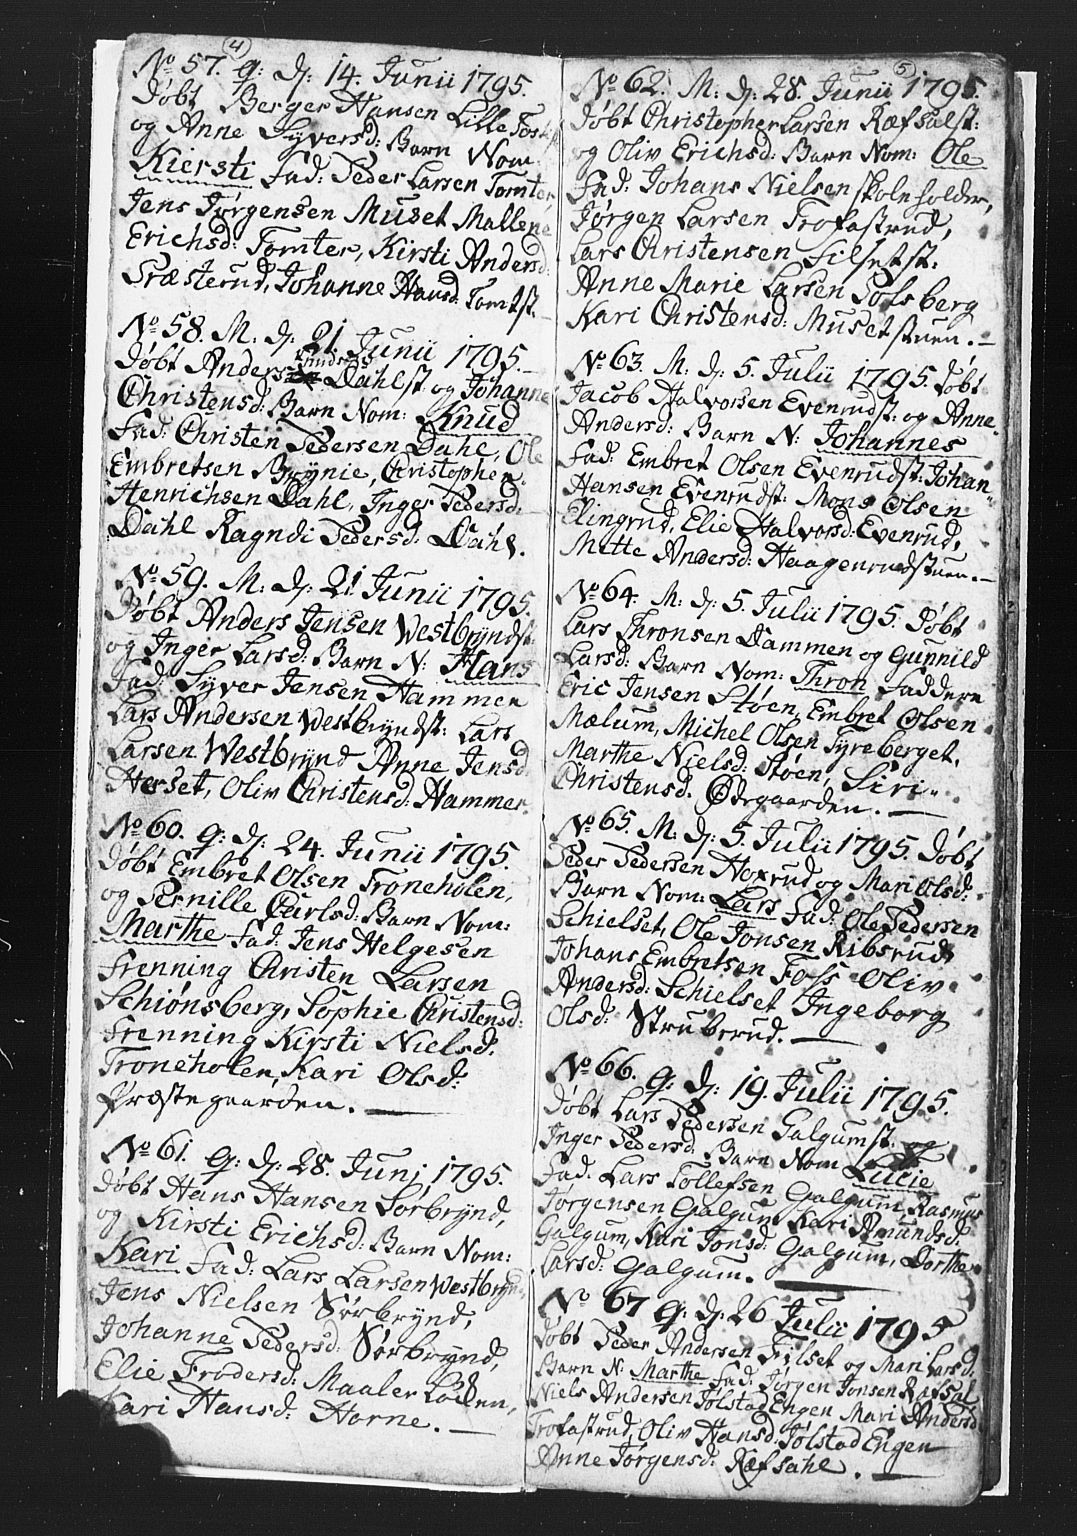 4
No 57. q: D: 14. Junii 1795.
Døbt Berger Hansen Lille
og Anne Syversd: Barn Nom:
Kiersti Fad: Peder Larsen Tomter
Jens Jørgensen Muset Mallene
Erichsd: Tomter, Kirsti Andersd:
Præsterud, Johanne Hansd: Tomtst.
No 58. M. D: 21 Junii 1795.
Knudsen
Døbt Anders Dahlst og Johanne
Christensd: Barn Nom: Knud
Fad: Christen Pedersen Dahl, Ole
Embretsen Brynie, Christopher
Henrichsen Dahl, Inger Pedersd:
Dahl Ragndi Pedersd: Dahl.
No 59. M. D: 21 Junii 1795.
Døbt Anders Jensen Westbryndst:
og Inger Larsd: Barn N: Hans
Fad: Syver Jensen Hammer
Lars Andersen Westbryndst: Lars
Larsen Westbrynd Anne Jensd:
Herset, Oliv Christensd: Hammer.
No 60. q: D: 24. Junii 1795.
Døbt Embret Olsen Troneholen,
og Pernille Carlsd: Barn Nom:
Marthe Fad: Jens Helgesen
Frenning Christen Larsen
Schiønsberg, Sophie Christensd:
Frenning Kirsti Nielsd:
Troneholen, Kari Olsd:
Præstegaarden. —
No 61. q: D: 28. Junj 1795.
Døbt Hans Hansen Sørbrynd,
og Kirsti Erichsd: Barn Nom:
Kari Fad: Lars Larsen Westbryn
Jens Nielsen Sørbrynd,
Johanne Pedersd: Sørbrynd,
Elie Frodersd: Maalerløkken,
Kari Hansd: Horne. —
5
No 62. M: D: 28. Junii 1795.
Døbt Christopher Larsen Ræfsalst:
og Oliv Erichsd: Barn Nom: Ole
Fad: Johans Nielsen skoleholder,
Jørgen Larsen Trofastrud,
Lars Christensen Filsetst:
Anne Marie Larsen Solsberg
Kari Christensd: Musetstuen. —
No 63. M: D: 5. Julii 1795. Døbt
Jacob Halvorsen Evenrudst: og Anne
Andersd: Barn N: Johannes
Fad: Embret Olsen Evenrudst: Johan
Hansen Evenrudst: Mons Olsen
Elingrud, Elie Halvorsd: Evenrud,
Mitte Andersd: Haagenrudstuen. —
No 64. M: D: 5. Julii 1795. Døbt
Lars Thronsen Dammen og Gunnild
Larsd: Barn Nom: Thron Faddere
Eric Jensen Støen, Embret Olsen
Mælum, Michel Olsen Tyreberget,
Marthe Nielsd: Støen, Siri
Christensd. Ødegaarden. —
No 65. M. D: 5. Julii 1795. Døbt
Peder Pedersen Hoxrud og Mari Olsd:
Barn Nom: Lars Fad: Ole Pedersen
Schielset, Ole Jonsen Ribsrud,
Johans Embretsen Foss Oliv
Andersd: Schielset Ingeborg
Olsd: Struberud. —
No 66. q: D: 19. Julii 1795.
Døbt Lars Pedersen Galgumst. og
Inger Pedersd: Barn Nom Lucie
Fad. Lars Tollefsen Galgum, Rasmus
Jørgensen Galgum Kari Amundsd:
Galgum, Kari Jonsd: Galgum, Dorthe
Larsd: Galgum. —
No 67 q: D: 26 Julii 1795
Døbt Peder Andersen Filset og Mari Larsd:
Barn N: Marthe Fad: Jørgen Jonsen Ræfsal
Niels Andersen Jølstad Engen Mari Andersd:
Trofastrud, Oliv Hansd: Jølstad Engen
Anne Jørgensd: Ræfsahl. —